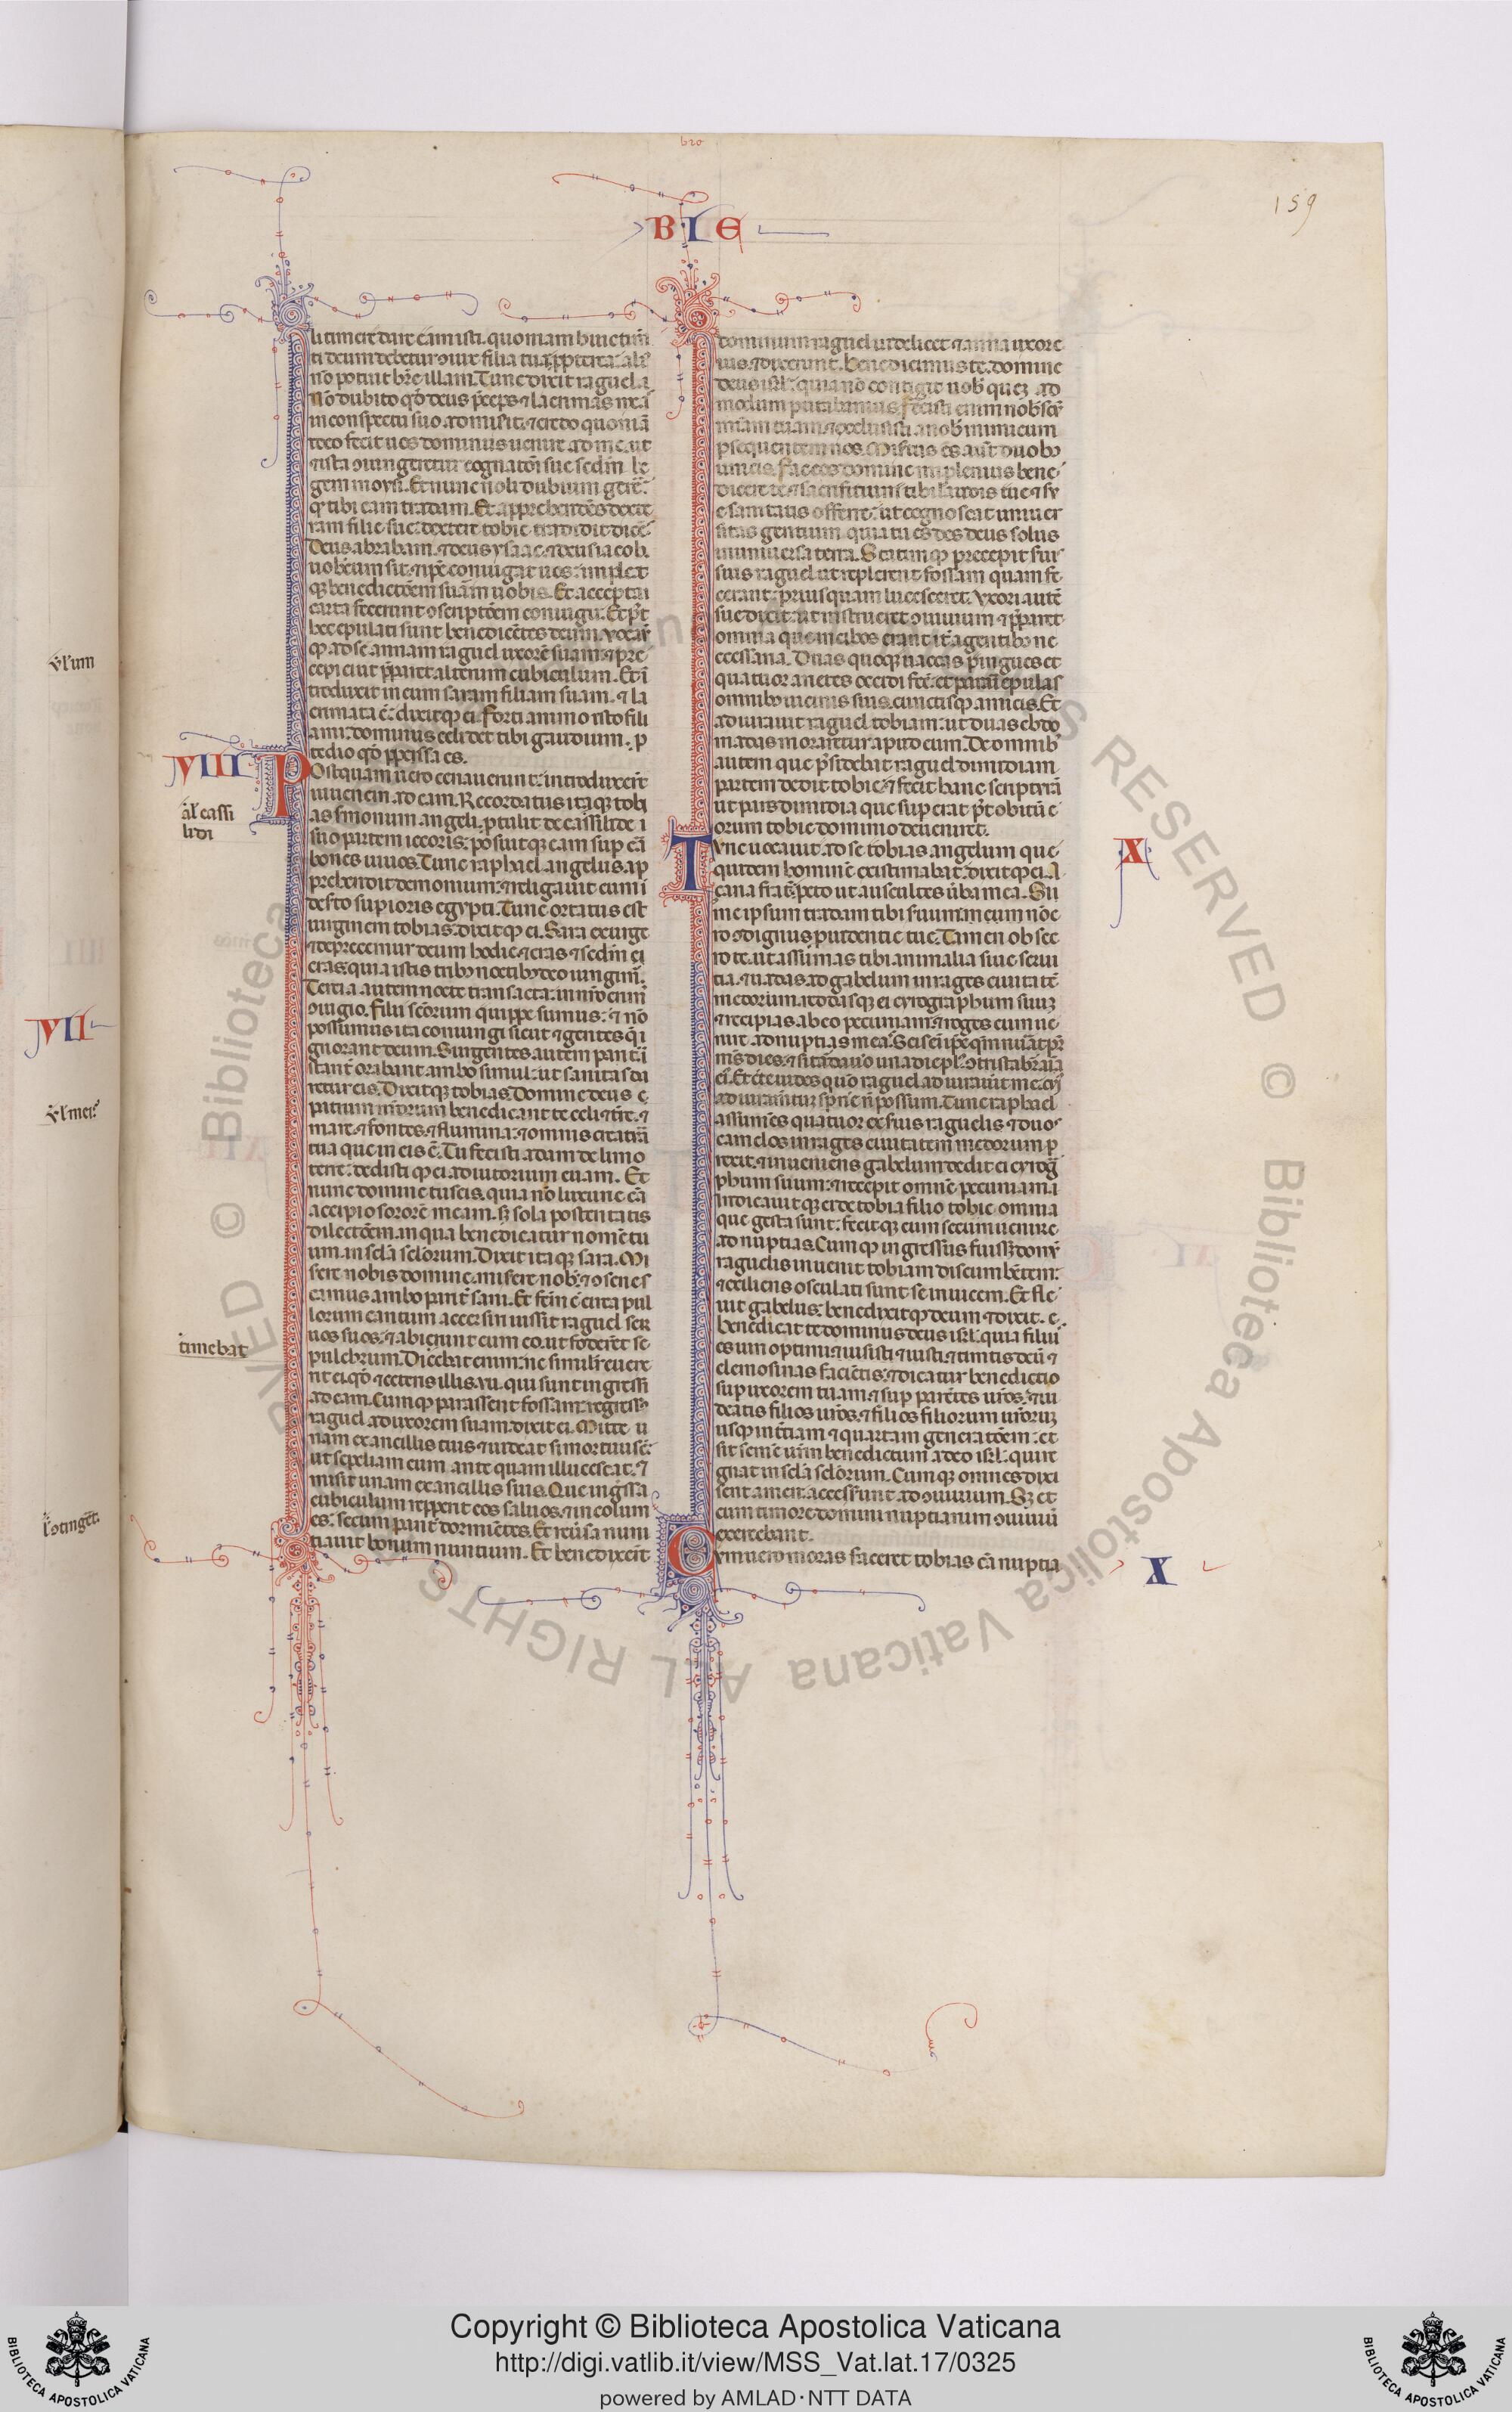 bio
159
BIE
li timeas dare eam isti. quoniam huic timenti
ti deum debetur coniux filia tua. propterea alius
non potuit habere illam. Tunc dixit raguel.
non dubito quod deus preces et lacrimas meas
in conspectu suo admisit. et credo quoniam
ideo fecit uos dominus uenire ad me. ut
et ista coniungeretur cognationi sue secundum le
gem moysi. Et nunc noli dubium gerere.
quod tibi eam tradam. Et apprehendens dexte
ram filie sue. dextere tobie tradidit dicens.
Deus abraham. et deus ysaac. et deus iacob.
uobiscum sit. et ipse coniungat uos. impleat
que benedictionem suam in uobis. Et accepta
carta fecerunt conscriptionem coniugii. Et post
hec epulati sunt benedicentes deum. Vocauit
que ad se annam raguel uxorem suam. et pre
cepit ei ut prepararet alterum cubiculum. Et in
troduxit in eum saram filiam suam. et la
crimata est. dixitque ei. Forti animo esto fili
a mi. dominus celi det tibi gaudium. pro
tedio quod perpessa es.
VIII
Postquam uero cenauerunt. introduxerunt
iuuenem ad eam. Recordatus itaque tobi
al cassi
lidi
as sermonum angeli. protulit de cassilide
suo partem iecoris. posuitque eam super car
bones uiuos. Tunc raphael angelus ap
prehendit demonium. et religauit eum in
deserto superioris egypti. Tunc ortatus est
uirginem tobias. dixitque ei. Sara exurge
et deprecemur deum hodie. et cras. et secundum
cras. quia istis tribus noctibus deo iungimur.
Tercia autem nocte transacta. in nostro erimus
coniugio. Filii sanctorum quippe sumus. et non
possumus ita coniungi sicut et gentes que i
gnorant deum. Surgentes autem pariter in
stanter orabant ambo simul. ut sanitas da
retur eis. Dixitque tobias. Domine deus
patrum nostrorum benedicant te celi et terre. et
mare. et fontes. et flumina. et omnis creatura
tua que in eis est. Tu fecisti adam de limo
terre. dedistique ei adiutorium euam. Et
nunc domine tu scis. quia non luxurie causa
accipio sororem meam. sed sola posteritatis
dilectione. in qua benedicatur nomen tu
um in secula seculorum. Dixit itaque sara. Mi
serere nobis domine. miserere nobis. et consenes
camus ambo pariter sani. Et factum est circa pul
lorum cantum accersiri iussit raguel ser
uos suos. et abierunt cum eo. ut foderent se
timebat
pulchrum. Dicebat enim. ne simili euene
rit ei. quo et ceteris illis .vii. qui sunt ingressi
ad eam. Cumque parassent fossam. regressus
raguel ad uxorem suam. dixit ei. Mitte u
nam ex ancillis tuis. et uideat si mortuus est.
ut sepeliam eum ante quam illucescat. et
misit unam ex ancillis suis. Que ingressa
cubiculum repperit eos saluos. et incolum
es. secum pariter dormientes. Et reuersa nun
tiauit bonum nuntium. Et benedixerunt
dominum raguel uidelicet et anna uxor e
ius. et dixerunt. Benedicimus te domine
deus israel. quia non contigit nobis quemad
modum putabamus. Fecisti enim nobiscum
misericordiam tuam. et exclusisti a nobis inimicum
persequentem nos. Misertus es autem duobus
unicis. Fac eos domine plenius bene
dicere te. et sacrificium tibi laudis tue et su
e sanitatis offerre. ut cognoscat uniuer
sitas gentium. quia tu es deus solus
in uniuersa terra. Statimque precepit seruis
suis raguel ut replerent fossam quam fe
cerant. priusquam lucesceret. Vxori autem
sue dixit. ut instrueret conuiuium et prepararet
omnia que in cibos erant iter agentibus ne
cessaria. Duas quoque uaccas pingues et
quatuor arietes occidi fecit. et parari epulas
omnibus uicinis suis. cunctisque amicis. Et
adiurauit raguel tobiam. ut duas ebdo
madas moraretur apud eum. De omnibus
autem que possidebat raguel dimidiam
partem dedit tobie. et fecit hanc scripturam
ut pars dimidia que supererat post obitum e
orum tobie dominio deueniret.
X
Tunc uocauit ad se tobias angelum que
quidem hominem existimabat. dixitque ei. A
zaria frater. peto ut auscultes uerba mea. Si
me ipsum tradam tibi seruum. non e
ro condignus prudentie tue. Tamen obsec
ro te. ut assumas tibi animalia siue serui
tia. et uadas ad gabelum in rages ciuitatem
medorum. reddasque ei cyrographum suum
et recipias ab eo pecuniam. et roges eum ue
nire ad nuptias meas. Scis enim ipse quoniam numerat pater
meus dies. et si tardauero una die plus contristabitur anima
eius. Et certe uides quomodo raguel adiurauit me. cuius
adiuramentum spernere non possum. Tunc raphael
assumens quatuor ex seruis raguelis. et duos
camelos in rages ciuitatem medorum per
rexit. et inueniens gabelum dedit ei cyrogra
phum suum. et recepit omnem pecuniam.
indicauitque ei de tobia filio tobie omnia
que gesta sunt. fecitque eum secum uenire
ad nuptias. Cumque ingressus fuisset domum
raguelis inuenit tobiam discumbentem.
et exiliens osculati sunt se inuicem. Et fle
uit gabelus. benedixitque deum et dixit.
benedicat te dominus deus israel. quia filius
es uiri optimi et iusti. et timentis deum et
elemosinas facientis. et dicatur benedictio
super uxorem tuam. et super parentes uestros. et ui
deatis filios uestros. et filios filiorum uestrorum
usque in tertiam et quartam generationem. et
sit semen uestrum benedictum a deo israel. qui re
gnat in secula seculorum. Cumque omnes dixi
sent amen. accesserunt ad conuiuium. Sed et
cum timore domini nuptiarum conuiuium
exercebant.
X
Cum uero moras faceret tobias causa nuptia
VII
Copyright © Biblioteca Apostolica Vaticana
http://digi.vatlib.it/view/MSS_Vat.lat.17/0325
powered by AMLAD·NTT DATA
BIBLIOTECA APOSTOLICA VATICANA
BIBLIOTECA APOSTOLICA VATICANA